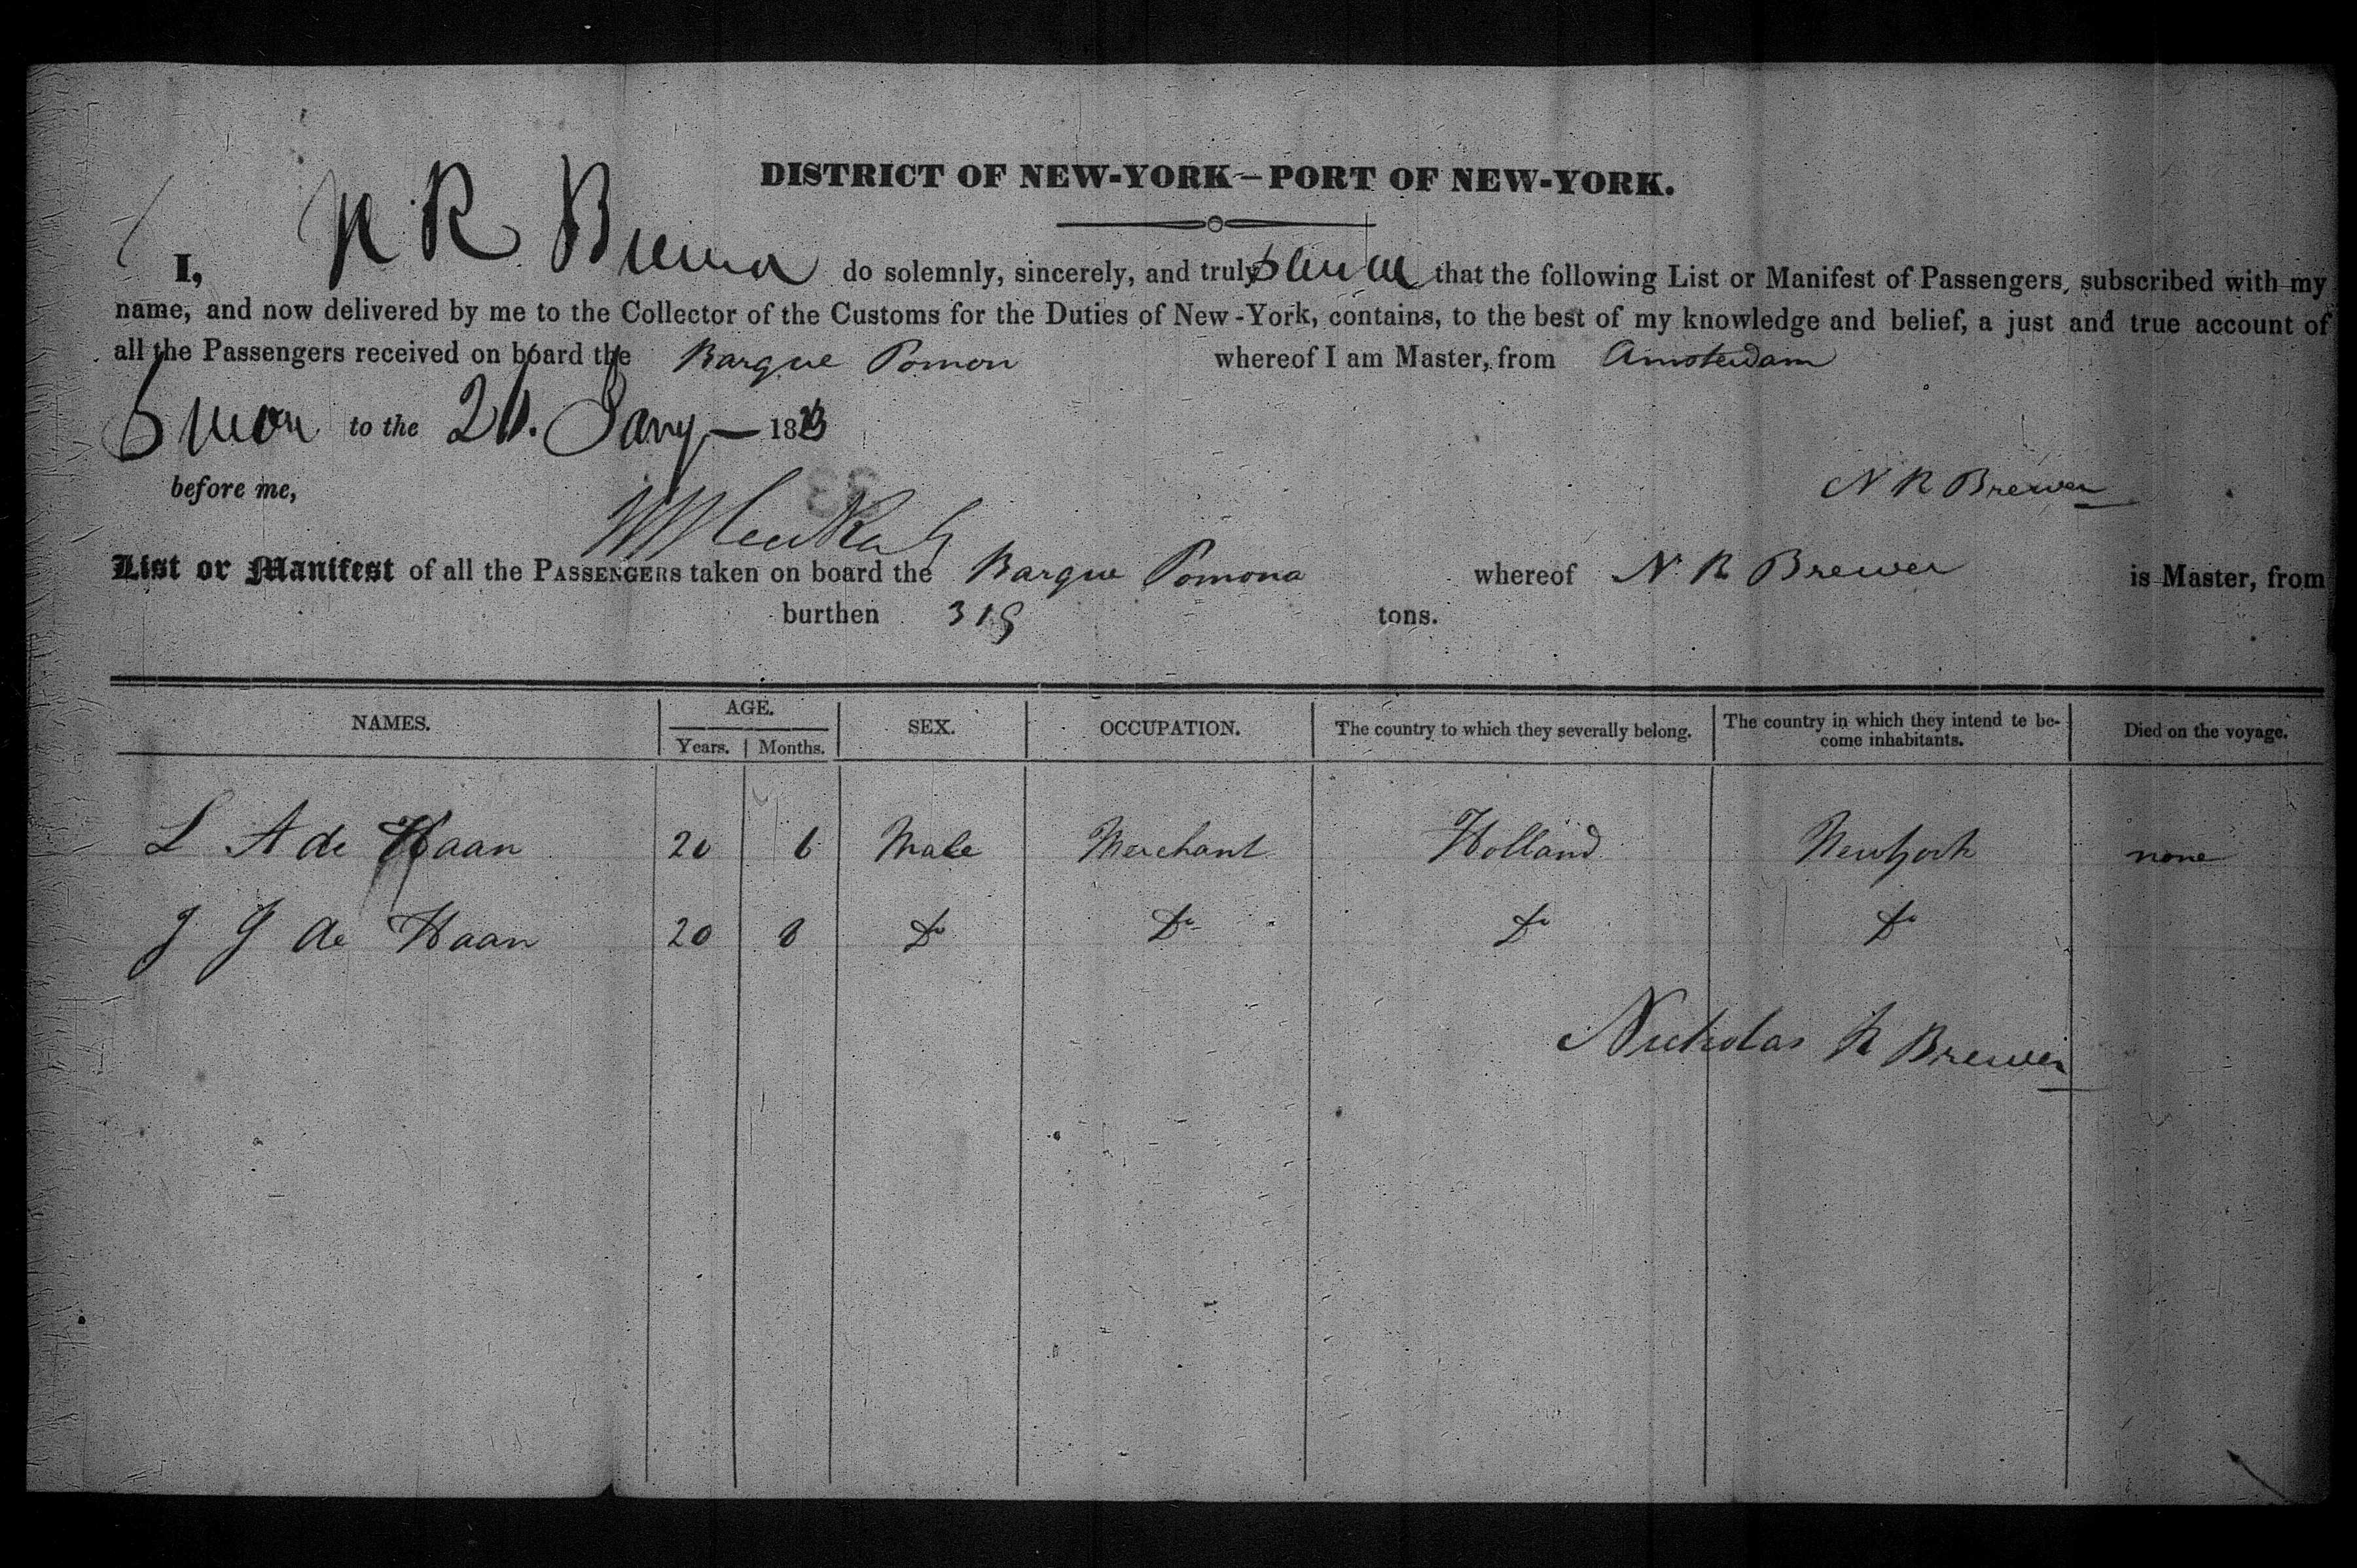 DISTRICT OF NEW-YORK—PORT OF NEW-YORK.
I, N R Brewer do solemnly, sincerely, and truly swear that the following List or Manifest of Passengers, subscribed with my
name, and now delivered by me to the Collector of the Customs for the Duties of New-York, contains, to the best of my knowledge and belief, a just and true account of
all the Passengers received on board the Barque Pomon whereof I am Master, from Amsterdam
Sworn to the 26. Jany— 18
before me,
N R Brewer
33
List or Manifest of all the PASSENGERS taken on board the Barque Pomona whereof N. R Brewer is Master, from
burthen 319 tons.
NAMES. AGE. SEX. OCCUPATION. The country to which they severally belong. The country in which they intend te become inhabitants. Died on the voyage.
Years. Months.
L A de Haan 20 6 Male Merchant Holland Newyork none
J J de Haan 20 8 Do Do Do Do
Nicholas R Brewer